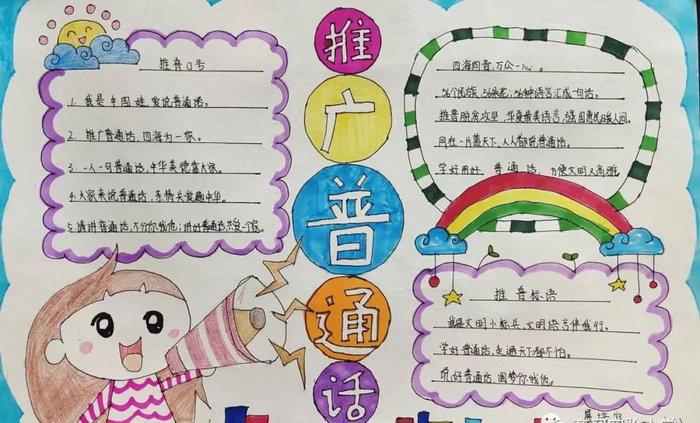 推广普通话
推普口号
1. 我是中国娃,爱说普通话。
2. 推广普通话,四海为一家。
3. 一人一句普通话,中华美德富大家。
4. 大家来说普通话,手情长爱趣中华。
5. 请讲普通话,不分你我他;讲好普通话共是一家。
四海同音,万众一心。
56个民族,56朵花,56种语言汇成一句话。
推普脱贫攻坚,华夏最美语言,强国惠民暖人间。
同在一片蓝天下,人人都说普通话。
学好用好 普通话,方便文明又高雅。
推普标语
我是文明小标兵,文明语言伴我行。
学好普通话,走遍天下都不怕。
说好普通话,圆梦你我他。